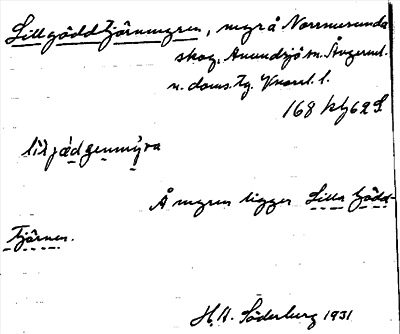 Lillgäddtjärnmyren, myr å Norrmesunda
skog, Anundsjö sn. Ångerml.
n. doms. tg. Vnorrl. l.
168 klg 62 S.
Å myren ligger Lilla Gädd-
tjärnen.
H.A. Söderberg 1931